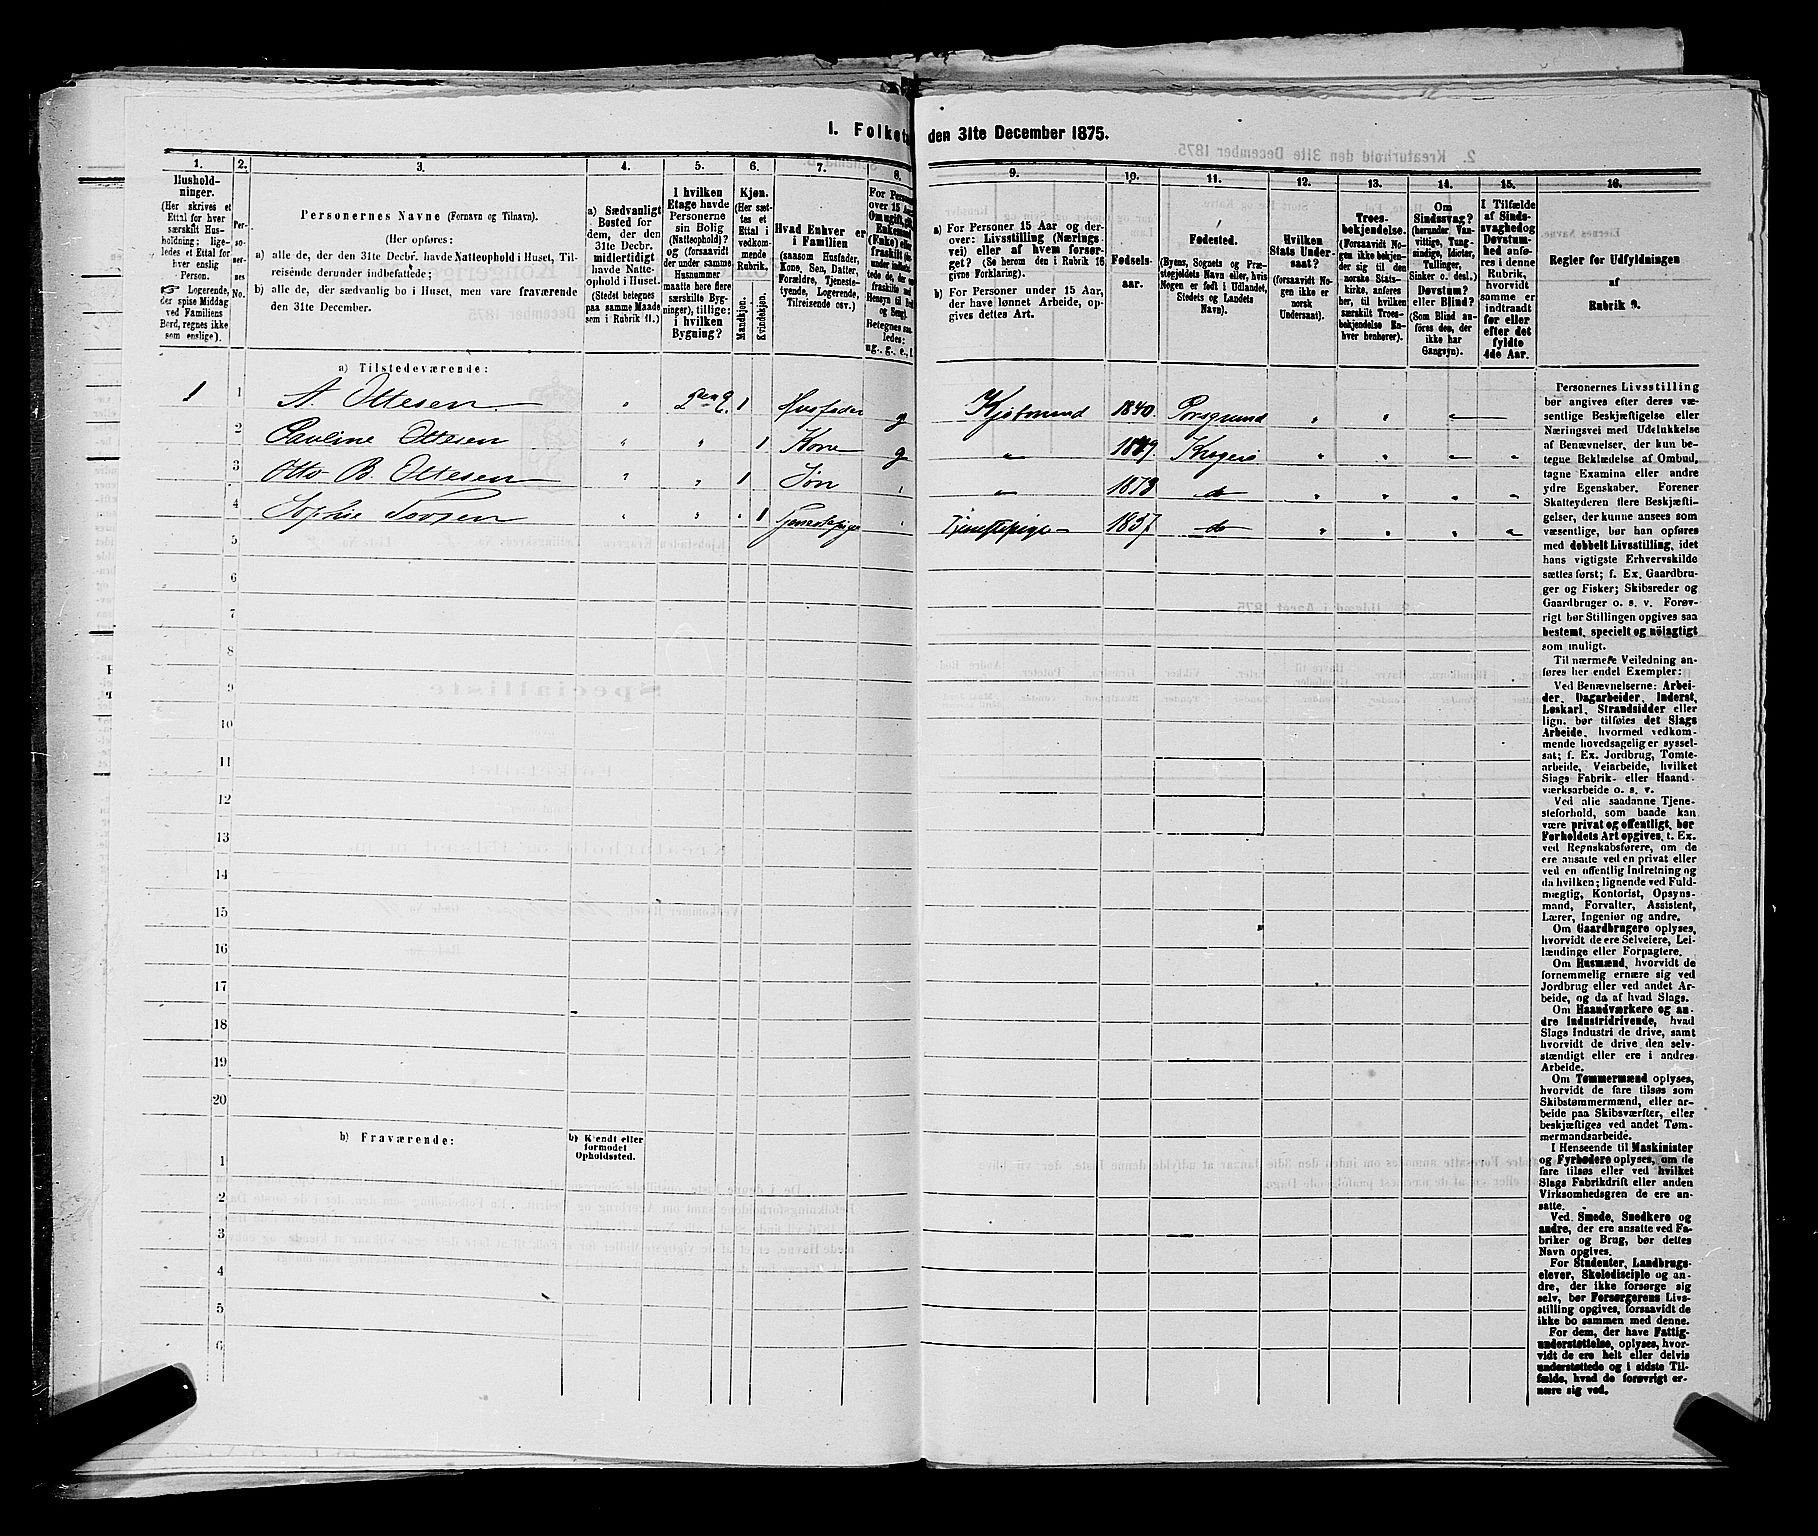 I. Folket
den 31te December 1875.
1.
Hushold-
ninger.
(Her skrives et
Ettal for hver
særskilt Hus-
holdning; lige-
ledes et Ettal for
hver enslig
Person.
Logerende,
der spise Middag
ved Familiens
Bord, regnes ikke
som enslige).
2.
Per-
so-
ner-
nes
No.
3.
Personernes Navne (Fornavn og Tilnavn).
(Her opføres:
a) alle de, der den 31te Decbr. havde Natteophold i Huset, Til-
reisende derunder indbefattede;
b) alle de, der sædvanlig bo i Huset, men vare fraværende
den 31te December.
4.
a) Sædvanligt
Bosted for
dem, der den
31te Decbr.
midlertidigt
havde Natte-
ophold i Huset.
(Stedet betegnes
paa samme Maade
som i Rubrik 11.)
5.
I hvilken
Etage havde
Personerne
sin Bolig
(Natteophold)?
og (forsaavidt
der under samme
Husnummer
maatte høre flere
særskilte Byg-
ninger), tillige:
i hvilken
Bygning?
6.
Kjøn.
(Her sæt-
tes et
Ettal i
vedkom-
mende
Rubrik.
Mandkjøn.
Kvindekjøn.
7.
Hvad Enhver er
i Familien
(saasom Husfader,
Kone, Søn, Datter,
Forældre, Tjeneste-
tyende, Logerende,
Tilreisende osv.)
8.
For Pers
over 15 Aar
Om ugift, gi
Enkemand
(Enke) eller
fraskilt
Betegnes saa-
ledes:
ug., g., e., f.
9.
a) For Personer 15 Aar og der-
over: Livsstilling (Nærings-
vei) eller af hvem forsør-
get? (Se herom den i Rubrik 16
givne Forklaring).
b) For Personer under 15 Aar,
der have lønnet Arbeide, op-
gives dettes Art.
10.
Fødsels-
aar.
11.
Fødested.
(Byens, Sognets og Præ-
stegjeldets Navn eller, hvis
Nogen er født i Udlandet,
Stedets og Landets
Navn).
12.
Hvilken
Stats Under-
saat?
(forsaavidt No-
gen ikke er
norsk
Undersaat).
13.
Troes-
bekjendelse.
(Forsaavidt No-
gen ikke bekjen-
der sig til den
norske Stats-
kirke, anføres
her, til hvilken
særskilt Troes-
bekjendelse En-
hver henhører).
14.
Om
Sindssvag?
(herunder Van-
vittige, Tung-
sindige, Idioter,
Tullinger,
Sinker o. desl.)
Døvstum?
eller Blind?
(Som Blind an-
føres den, der
ikke har
Gangsyn).
15.
I Tilfælde
af Sinds-
svaghed og
Døvstum-
hed anfø-
res i denne
Rubrik,
hvorvidt
samme er
indtraadt
før eller
efter det
fyldte
4de Aar.
16.
Regler for Udfyldningen
af
Rubrik 9.
a) Tilstedeværende:
1 1 A Ottesen " 2den E. 1 Husfader g Kjøbmand 1840. Porsgrund " " " —
2 Pauline Ottesen " " 1 Kone g " Kragerø " " " "
3 Otto B. Ottesen " " 1 Søn " " 1873 do " " " "
4 Sophie " " " 1 Tjenestepige " Tjenestepige 1857 do " " " "
5
6
7
8
9
10
11
12
13
14
15
16
17
18
19
20
b) Fraværende:
b) Kjendt eller
formodet
Opholdssted.
1
2
3
4
5
6
Personernes Livsstilling
bør angives efter deres væ-
sentlige Beskjæftigelse eller
Næringsvei med Udelukkelse
af Benævnelser, der kun be-
tegne Beklædelse af Ombud,
tagne Examina eller andre
ydre Egenskaber. Forener
Skatteyderen flere Beskjæfti-
gelser, der kunne ansees som
væsentlige, bør han opføres
med dobbelt Livsstilling, idet
hans vigtigste Erhvervskilde
sættes først; f. Ex. Gaardbru-
ger og Fisker; Skibsreder og
Gaardbruger o. s. v. Forøv-
rigt bør Stillingen opgives saa
bestemt, specielt og nöiagtigt
som muligt.
Til nærmere Veiledning an-
føres her endel Exempler:
Ved Benævnelserne: Arbei-
der, Dagarbeider, Inderst,
Løskarl, Strandsidder eller
lign. bør tilføies det Slags
Arbeide, hvormed vedkom-
mende hovedsagelig er syssel-
sat; f. Ex. Jordbrug, Tomte-
arbeide, Veiarbeide, hvilket
Slags Fabrik- eller Haand-
værksarbeide o. s. v.
Ved alle saadanne Tjene-
steforhold, som baade kan
være privat og offentligt, bør
Forholdets Art opgives, t. Ex.
ved Regnskabsførere, om de
ere ansatte ved en privat eller
ved en offentlig Indretning og
da hvilken; lignende ved Fuld-
mægtig, Kontorist, Opsyns-
mand, Forvalter, Assistent,
Lærer, Ingeniør og andre.
Om Gaardbrugere oplyses,
hvorvidt de ere Selveiere, Lei-
lændinge eller Forpagtere.
Om Husmænd, hvorvidt de
fornemmelig ernære sig ved
Jordbrug eller ved andet Ar-
beide, og da af hvad Slags.
Om Haandværkere og an-
dre Industridrivende, hvad
Slags Industri de drive, samt
hvorvidt de drive den selv-
stændigt eller ere i andres
Arbeide.
Om Tømmermænd oplyses,
hvorvidt de fare tilsøs som
Skibstømmermænd, eller ar-
beide paa Skibsværfter, eller
beskjæftiges ved andet Tøm-
mermandsarbeide.
I Henseende til Maskinister
og Fyrbødere oplyses, om de
fare tilsøs eller ved hvilket
Slags Fabrikdrift eller anden
Virksomhedsgren de ere an-
satte.
Ved Smede, Snedkere og
andre, der ere ansatte ved Fa-
briker og Brug, bør dettes
Navn opgives.
For Studenter, Landbrugs-
elever, Skoledisciple og an-
dre, der ikke forsørge sig
selv, bør Forsørgerens Livs-
stilling opgives, forsaavidt de
ikke bo sammen med denne.
For dem, der have Fattig-
understøttelse, oplyses, hvor-
vidt de ere helt eller delvis
understøttede og i sidste Til-
fælde, hvad de forøvrigt er-
nære sig ved.